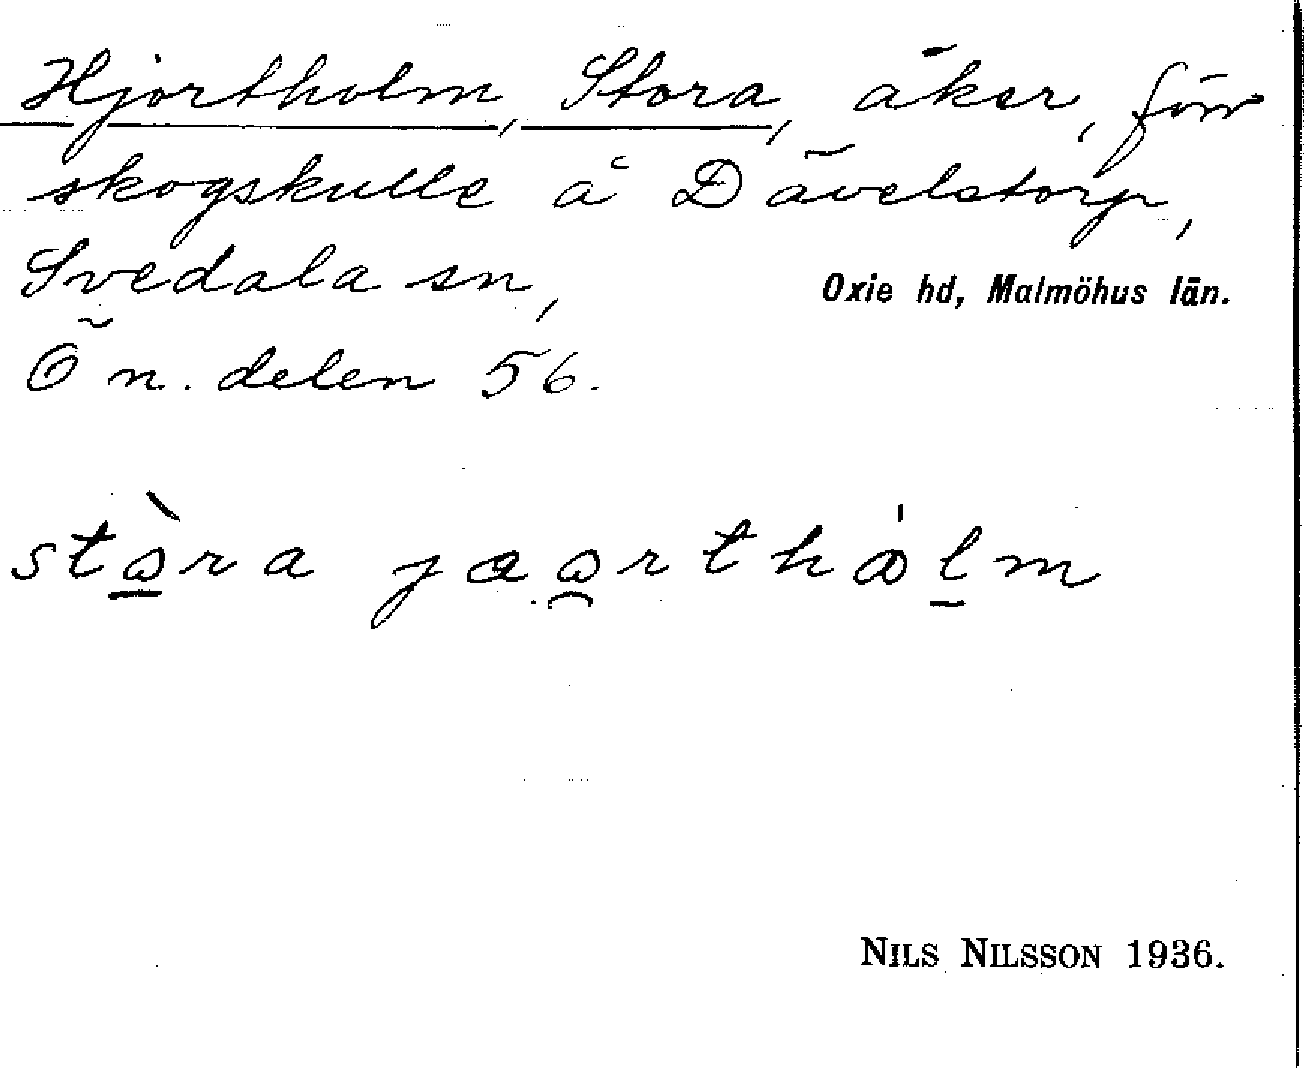 Hjortholm, Stora, åker, förr
skogskulle å Dävelstorp,
Svedala sn,
Oxie hd, Malmöhus län.
Ö n. delen 56.
stòra jæorthȧlm
NILS NILSSON 1936.